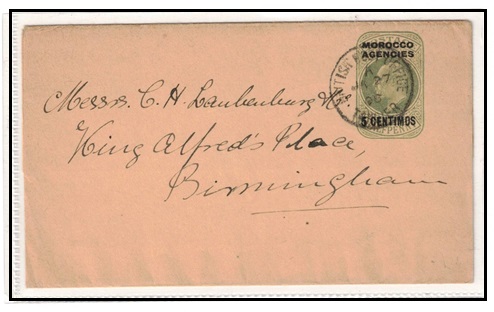 MOROCCO
AGENCIES
5 CENTIMOS
Messrs. C. H.
King Alfred's Place,
Birmingham